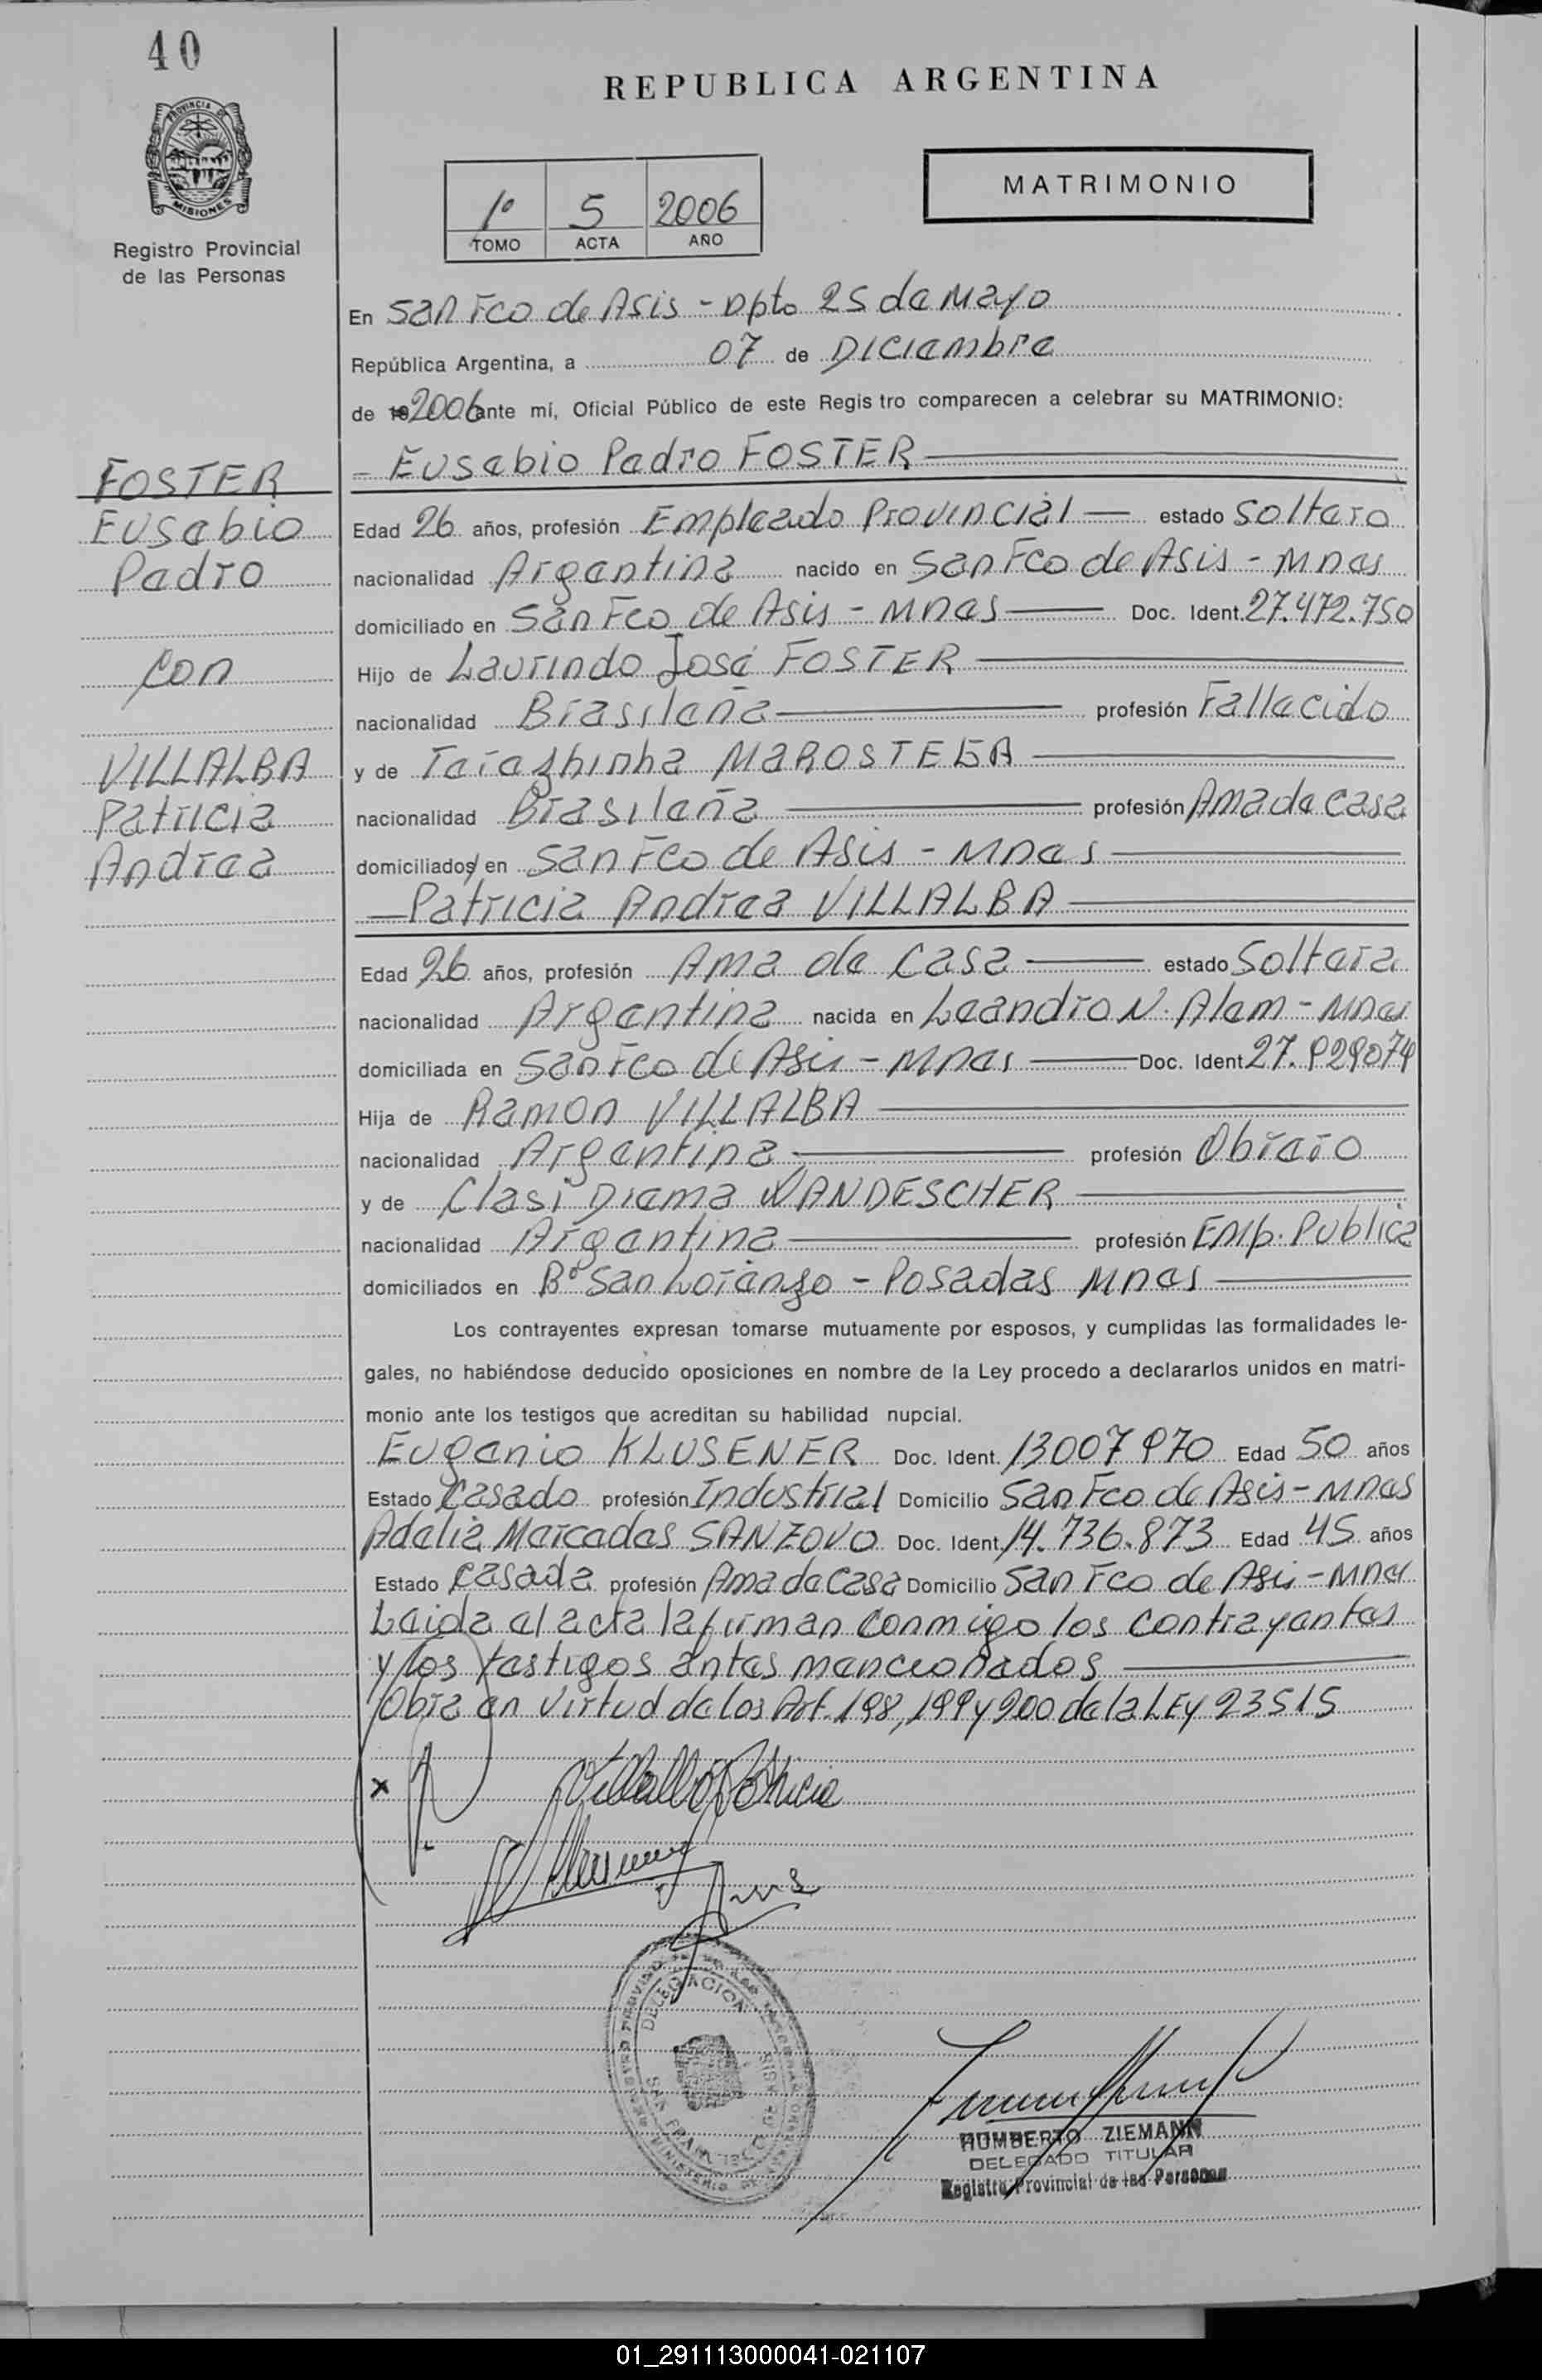 40
PROVINCIA DE
MISIONES
Registro Provincial
de las Personas
REPUBLICA ARGENTINA
1º 5 2006
TOMO ACTA AÑO
MATRIMONIO
En San Fco de Asis - Dpto 25 de Mayo
República Argentina, a 07 de Diciembre
de 19 2006 ante mí, Oficial Público de este Regis tro comparecen a celebrar su MATRIMONIO:
- Eusebio Pedro FOSTER
FOSTER
Eusebio
Pedro
con
VILLALBA
Patricia
Andrea
Edad 26 años, profesión Empleado Provincial estado Soltero
nacionalidad Argentina nacido en San Fco de Asis - Mnes
domiciliado en San Fco de Asis - Mnes Doc. Ident. 27.472.750
Hijo de Laurindo José FOSTER
nacionalidad Brasileña profesión Fallecido
y de Tereszhinha MAROSTEGA
nacionalidad Brasileña profesión Ama de casa
domiciliados/ en San Fco de Asis - Mnes
Patricia Andrea VILLALBA
Edad 26 años, profesión Ama de Casa estado Soltera
nacionalidad Argentina nacida en Leandro N. Alem - Mnes
domiciliada en San Fco de Asis - Mnes Doc. Ident.
Hija de Ramon VILLALBA
nacionalidad Argentina profesión Obrero
y de Clasi Diema WANDESCHER
nacionalidad Argentina profesión Emp. Publica
domiciliados en Bº San Lorenzo - Posadas Mnes
Los contrayentes expresan tomarse mutuamente por esposos, y cumplidas las formalidades le-
gales, no habiéndose deducido oposiciones en nombre de la Ley procedo a declararlos unidos en matri-
monio ante los testigos que acreditan su habilidad nupcial.
Eugenio KLUSENER Doc. Ident. 13007970 Edad 50 años
Estado Casado profesión Industrial Domicilio San Fco de Asis - Mnes
Adelia Mercedes SANZOVO Doc. Ident. 14.736.873 Edad 45 años
Estado casada profesión Ama de Casa Domicilio San Fco de Asis - Mnes
Leida el acta la firman conmigo los contrayentes
y los testigos antes mencionados
Obra en virtud de los Art. 198, 199 y 200 de la LEY 23515
x
Villalba Patricia
DELEGACION
SAN FRANCISCO DE ASIS
MINISTERIO DE
HUMBERTO ZIEMANN
DELEGADO TITULAR
Registro Provincial de las Personas
01_291113000041-021107